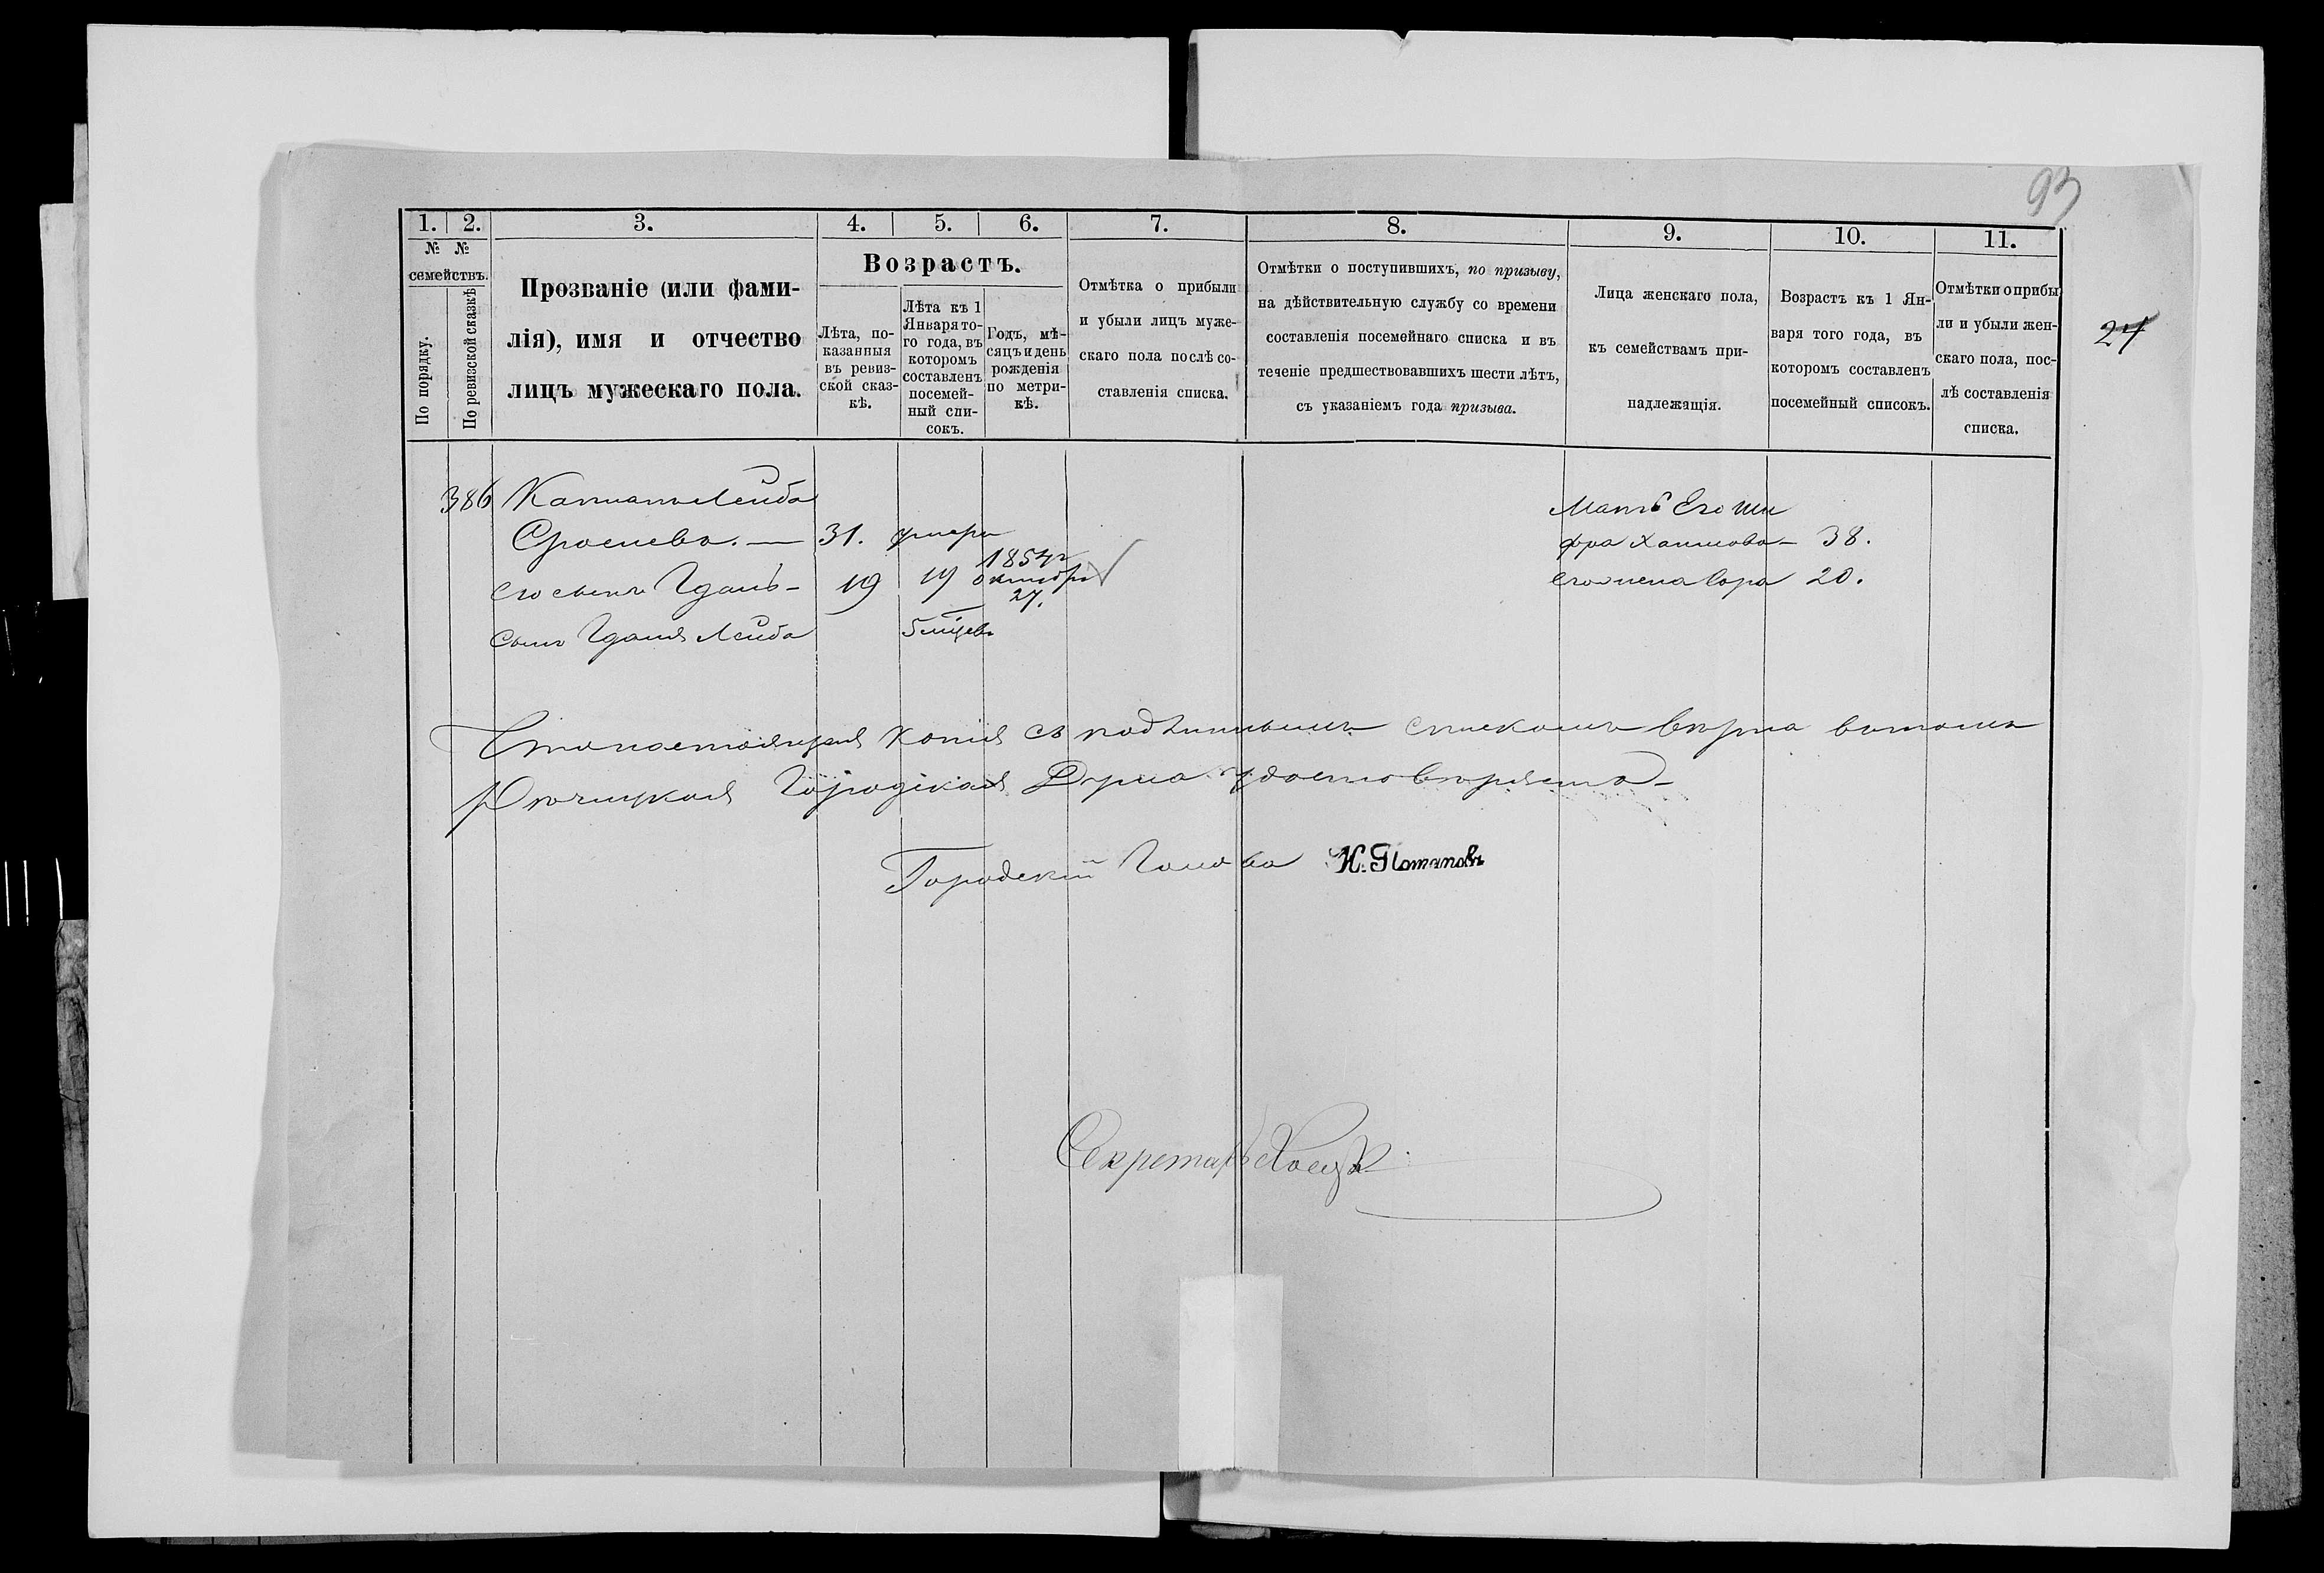 93
24
1. 2. 3. 4. 5. 6. 7. 8. 9. 10. 11.
№ №
семействъ.
По порядку.
По ревизской сказкѣ
Прозваніе (или фами-
лія), имя и отчество
лицъ мужескаго пола.
Возрастъ.
Лѣта, по-
казанныя
въ ревиз-
ской сказ-
кѣ.
Лѣта къ 1
Января то-
го года, въ
которомъ
составленъ
посемей-
ный спи-
сокъ.
Годъ, мѣ-
сяцъ и день
рожденія
по метри-
кѣ.
Отмѣтка о прибыли
и убыли лицъ муже-
скаго пола послѣ со-
ставленія списка.
Отмѣтки о поступившихъ, по призыву,
на дѣйствительную службу со времени
составленія посемейнаго списка и въ
теченіе предшествовавшихъ шести лѣтъ,
съ указаніемъ года призыва.
Лица женскаго пола,
къ семействамъ при-
надлежащія.
Возрастъ къ 1 Ян-
варя того года, въ
которомъ составленъ
посемейный списокъ.
Отмѣтки о прибы
ли и убыли жен-
скаго пола, пос-
лѣ составленія
списка.
386 Лейба
Сроелевъ. — 31. умеръ
его сынъ 19 19 1854 г
октября
27.
сынъ Лейба 5 мѣсяцевъ
Мать Его Ши
фра Хаимова — 38.
его жена Сора 20.
Что настоящая копія съ подлиннымъ спискомъ вѣрна въ томъ
Рѣчицкая Городская Дума удостовѣряетъ
Городской Голова Н. Потаповъ
Секретарь